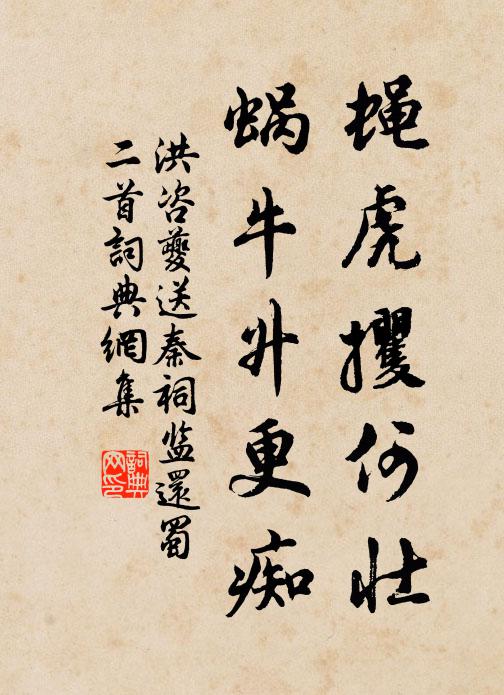 蝇虎攫何壮
蜗牛升更痴
洪咨夔送秦祠监還蜀
二首詞典網集
詞典
网印